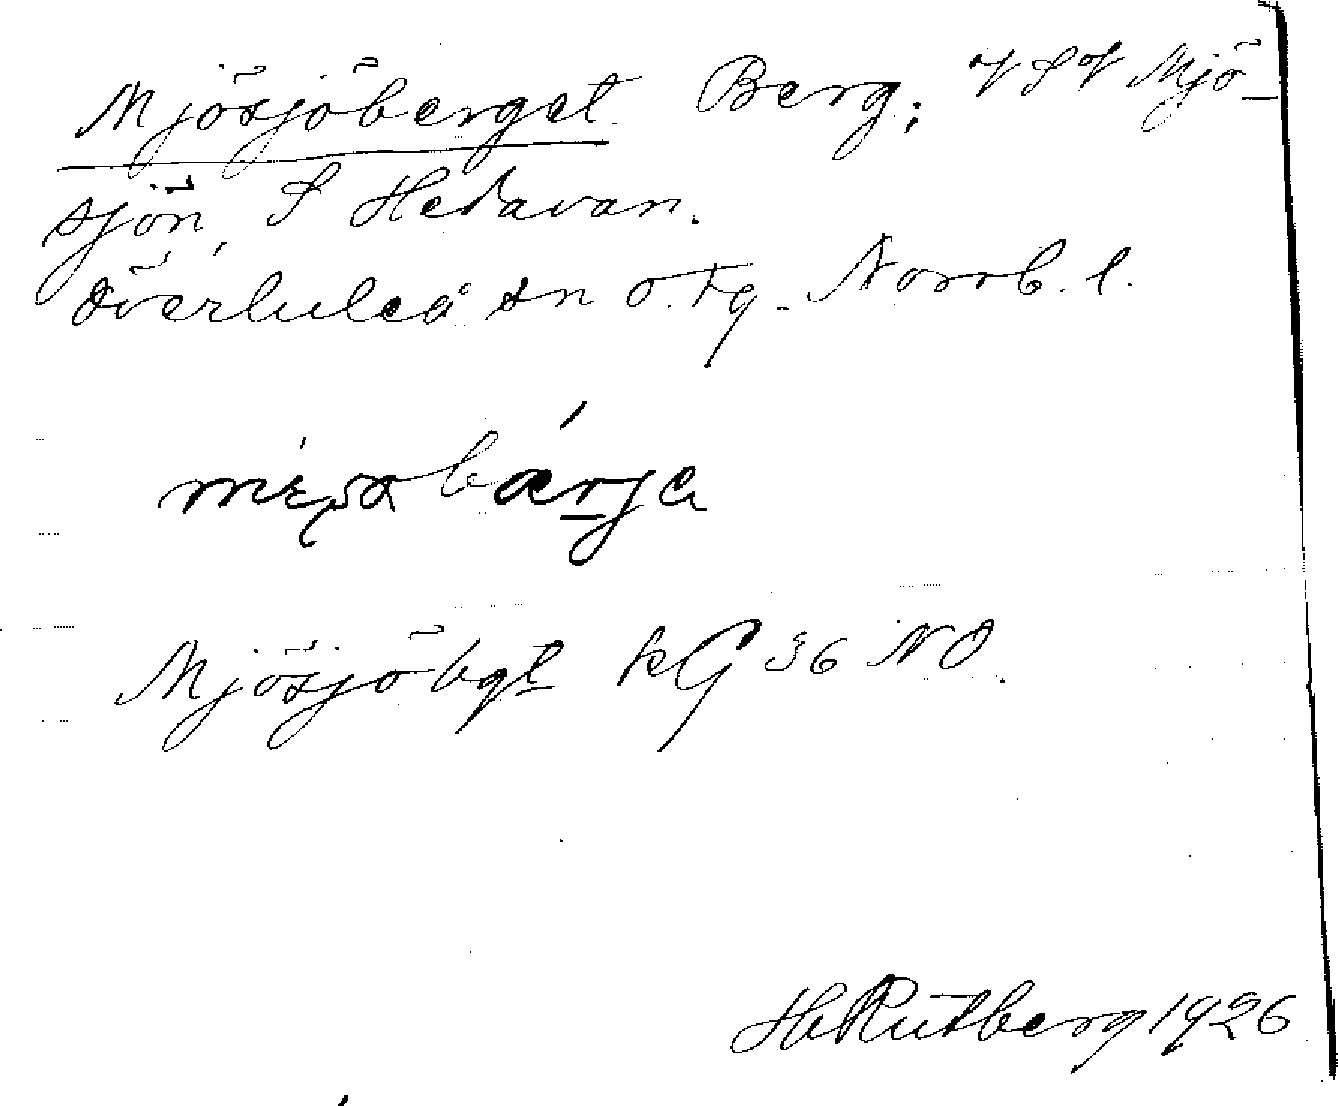 Mjösjöberget Berg; VSV Mjö-
sjön, S Hedavan.
Överluleå sn o. tg. Norrb. l.
Mjösjöbgt kG 36 NO.
H Rutberg 1926